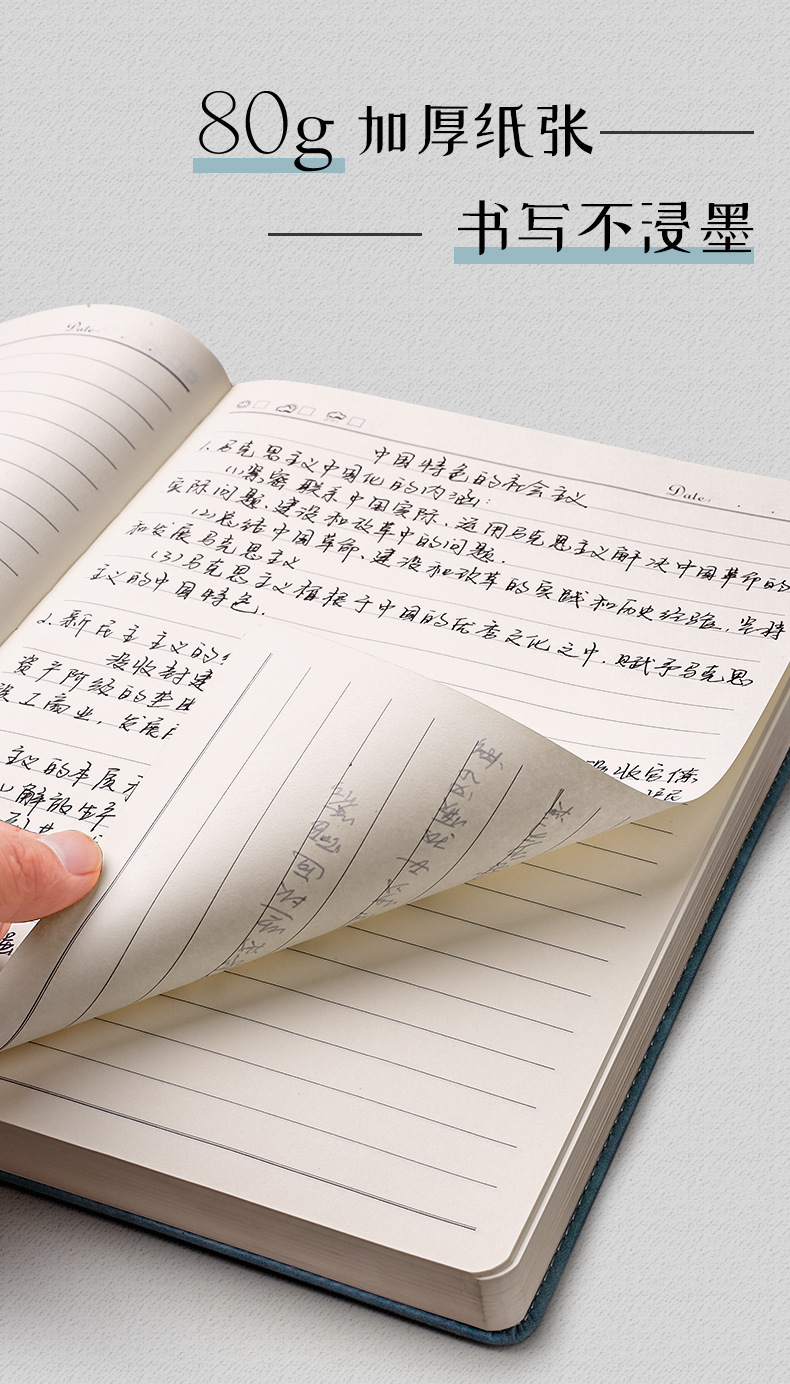 80g 加厚纸张
书写不浸墨
Date:
Date:
中国特色的社会主义
1.马克思主义中国化的内涵:
(1)紧密联系中国实际,运用马克思主义解决中国革命的
实际问题,建设和改革中的问题.
(2)总结中国革命、建设和改革的实践和历史经验,坚持
和发展马克思主义
(3)马克思主义植根于中国的优秀文化之中,赋予马克思
主义的中国特色.
2.新民主主义的
没收封建
资产阶级的垄
工商业,发展
主义的本质
解放生